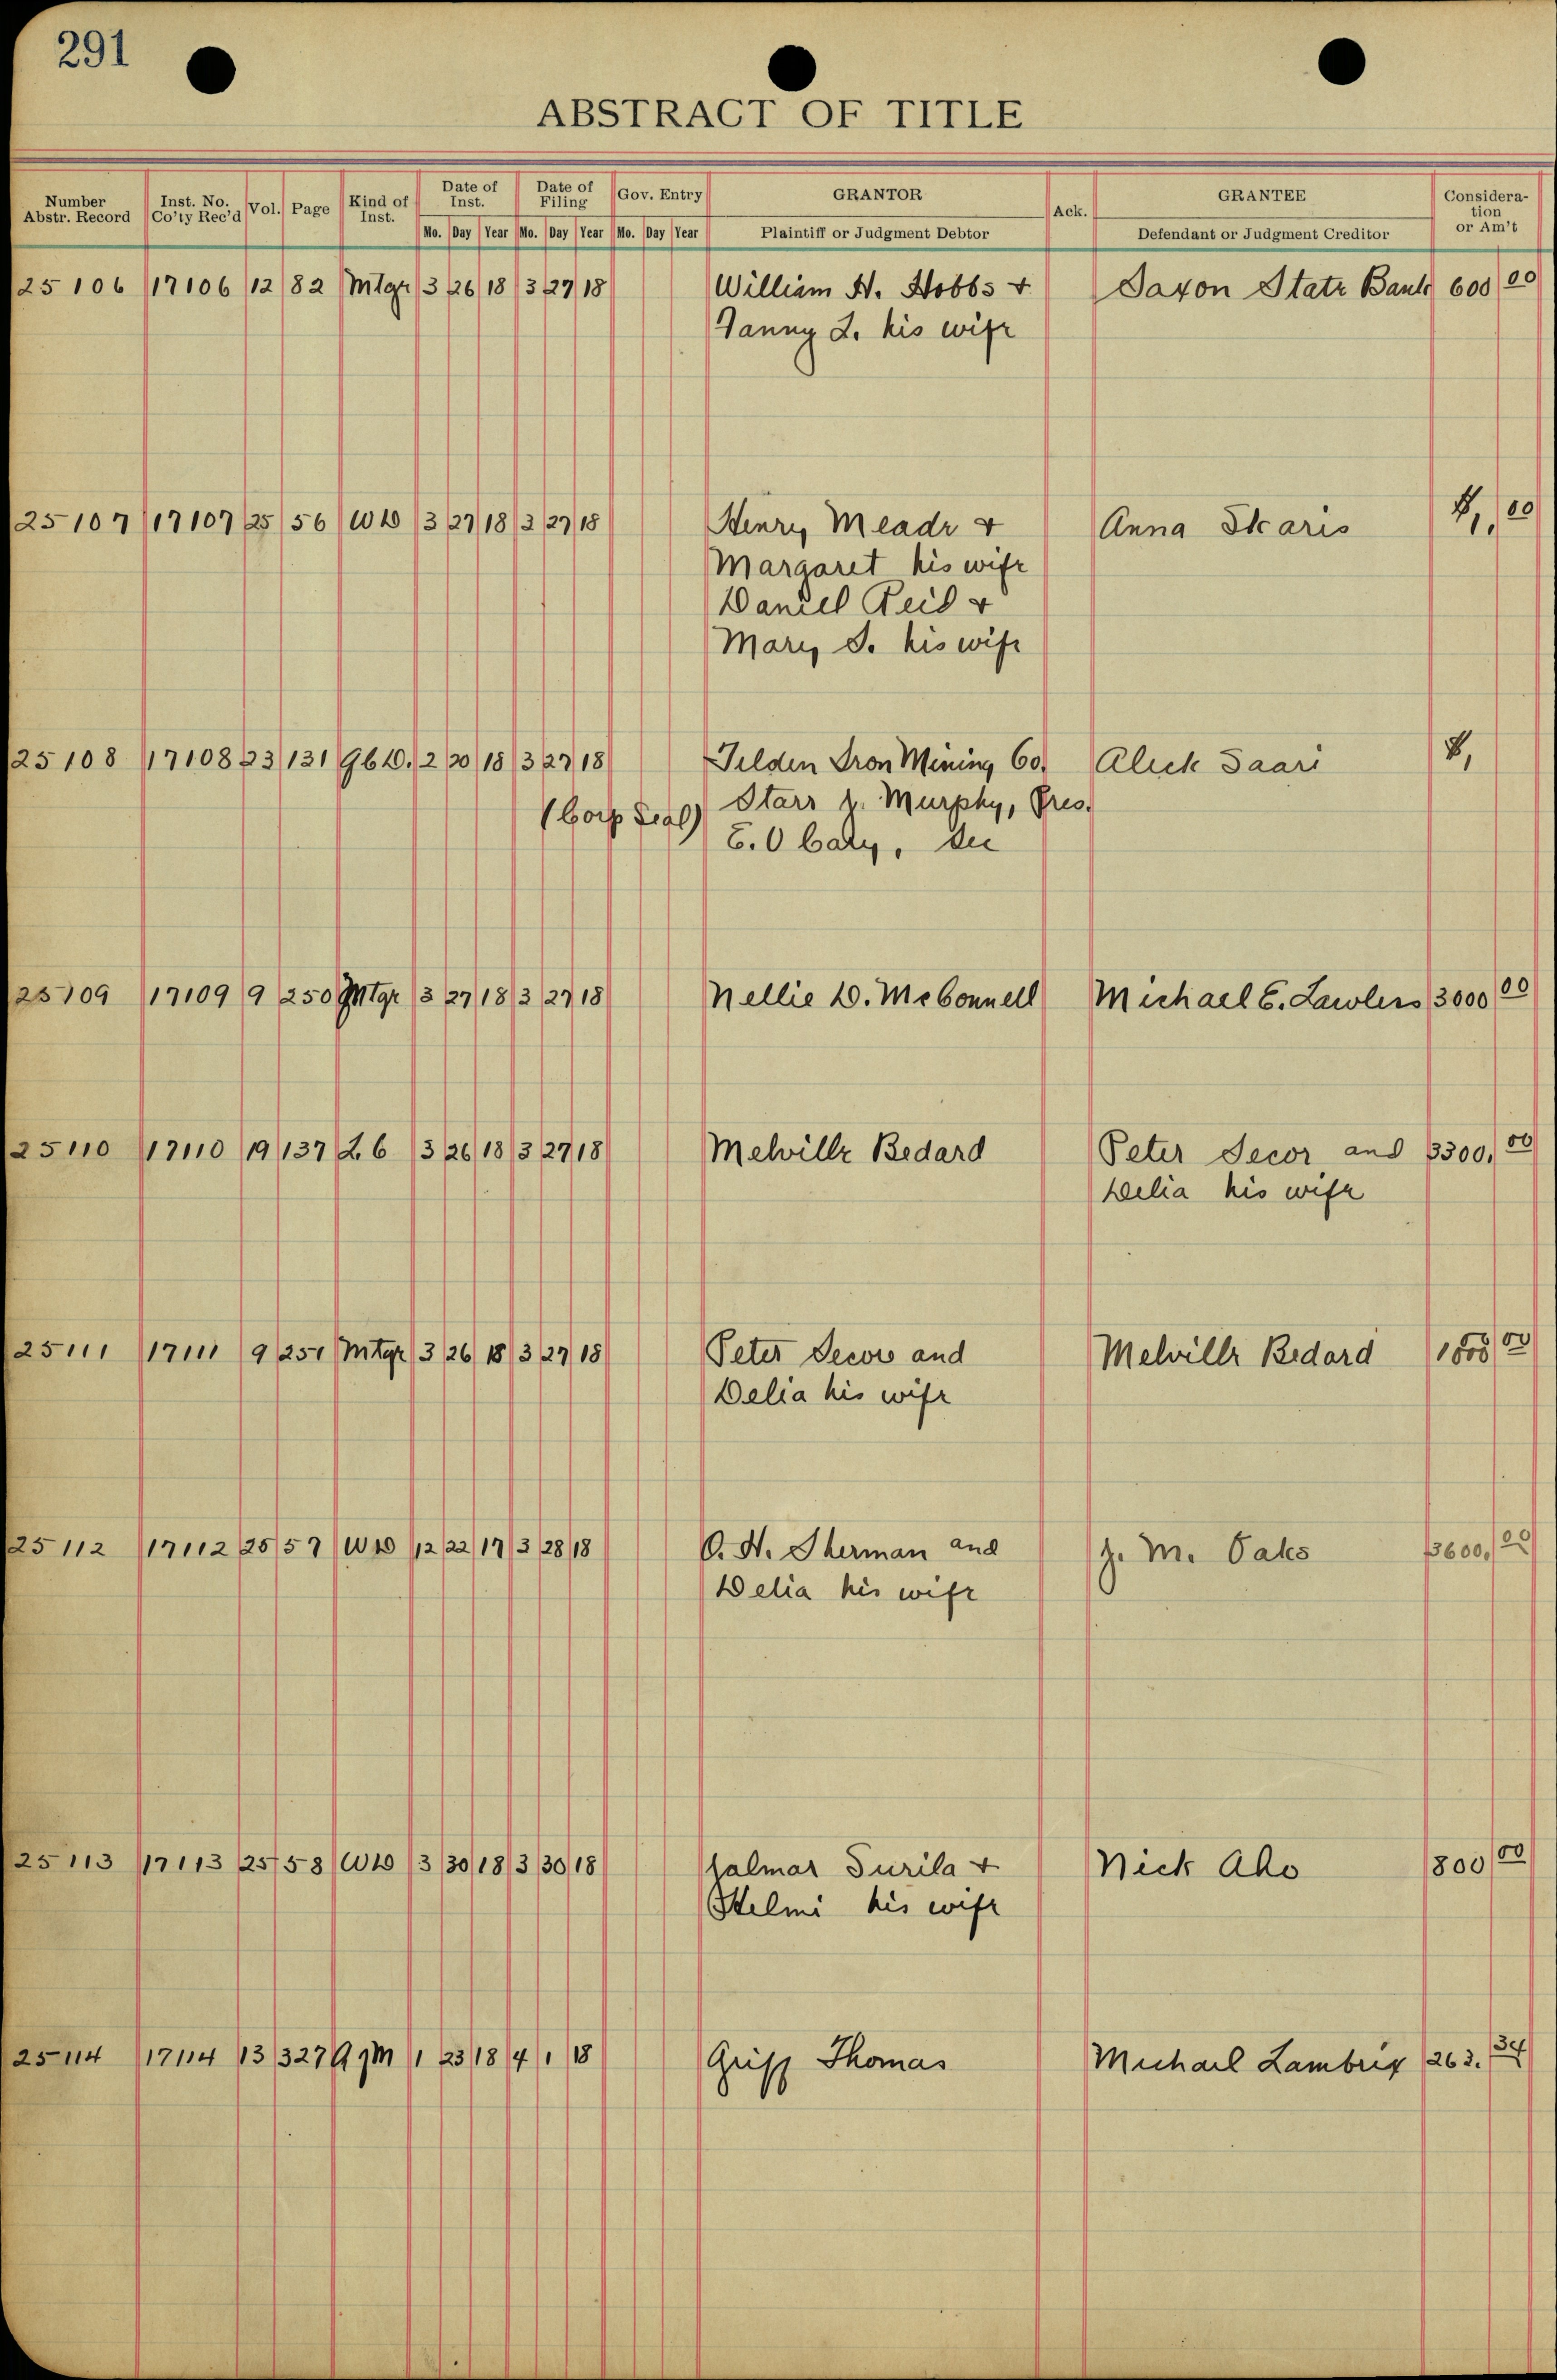 291
ABSTRACT OF TITLE
Number Abstr. Record Inst. No. Co'ty Rec'd Vol. Page Kind of Inst. Date of Inst. Date of Filing Gov. Entry GRANTOR Ack. GRANTEE Consideration or Am't
Mo. Day Year Mo. Day Year Mo. Day Year Plaintiff or Judgment Debtor Defendant or Judgment Creditor
25106 17106 12 82 Mtge 3 26 18 3 27 18 William H. Hobbs + Saxon State Bank 600 00
Fanny L. his wife
25107 17107 25 56 WD 3 27 18 3 27 18 Henry Meade + Anna Skaris $1, 00
Margaret his wife
Daniel Reid +
Mary S. his wife
25108 17108 23 131 QCD. 2 20 18 3 27 18 Tilden Iron Mining Co. Aleck Saari $1
(Corp Seal) Starr J. Murphy, Pres.
E. O Cary, Sec
25109 17109 9 250 Mtge 3 27 18 3 27 18 Nellie D. McConnell Michael E. Lawless 3000 00
25110 17110 19 137 L C 3 26 18 3 27 18 Melville Bedard Peter Secor and 3300, 00
Delia his wife
25111 17111 9 251 Mtge 3 26 18 3 27 18 Peter Secor and Melville Bedard 00
Delia his wife
25112 17112 25 57 WD 12 22 17 3 28 18 O. H. Sherman and J. M. Oaks 3600, 00
Delia his wife
25113 17113 25 58 WD 3 30 18 3 30 18 Jalmar Surila + Nick Aho 800 00
Helmi his wife
25114 17114 13 327 A of M 1 23 18 4 1 18 Griff Thomas Michael Lambrix 263. 34